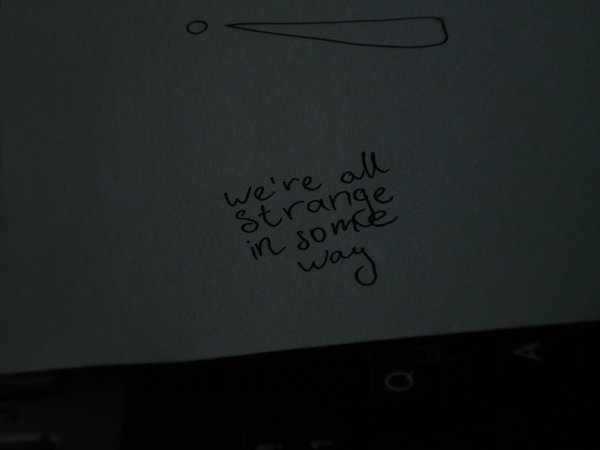 we're all
strange
in some
way
Q
A